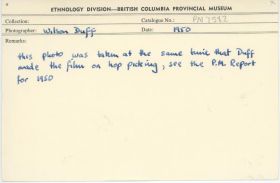 ETHNOLOGY DIVISION—BRITISH COLUMBIA PROVINCIAL MUSEUM
Collection: Catalogue No.: PN 7592
Photographer: Wilson Duff Date: 1950
Remarks:
this photo was taken at the same time that Duff
made the film on hop picking, see the P.M. Report
for 1950